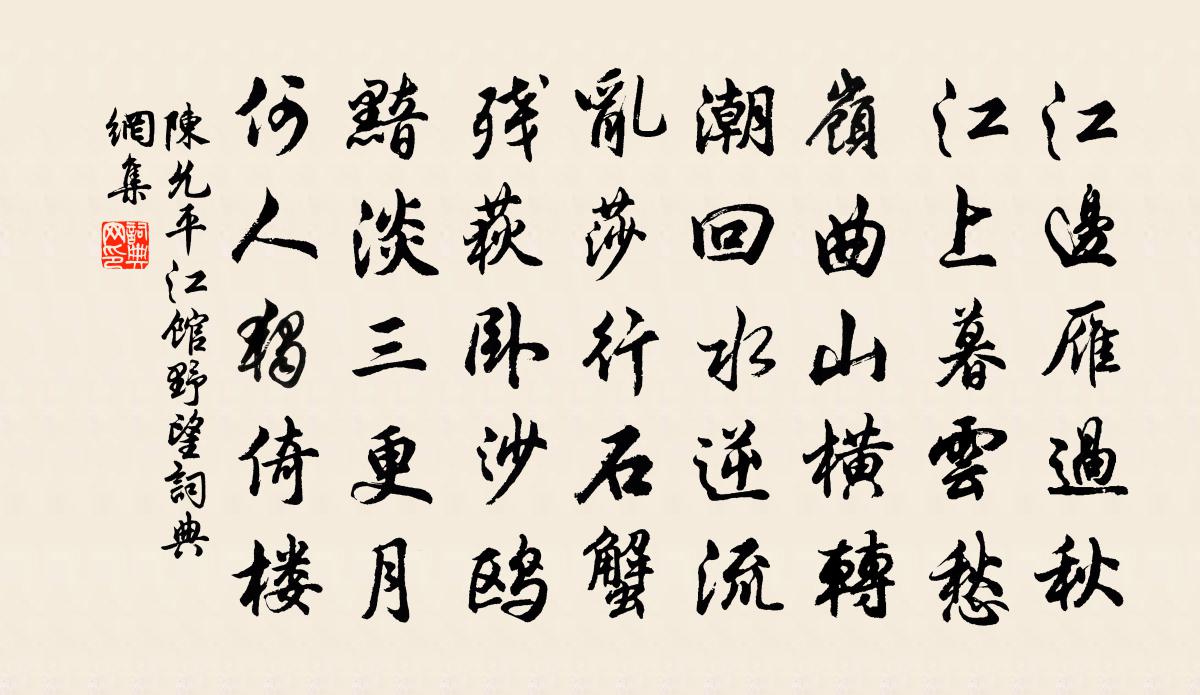 江邊雁過秋
江上暮雲愁
嶺曲山橫轉
潮回水逆流
亂莎行石蟹
残萩卧沙鸥
黯淡三更月
何人獨倚楼
陳允平江館野望詞典
網集
詞典
网印